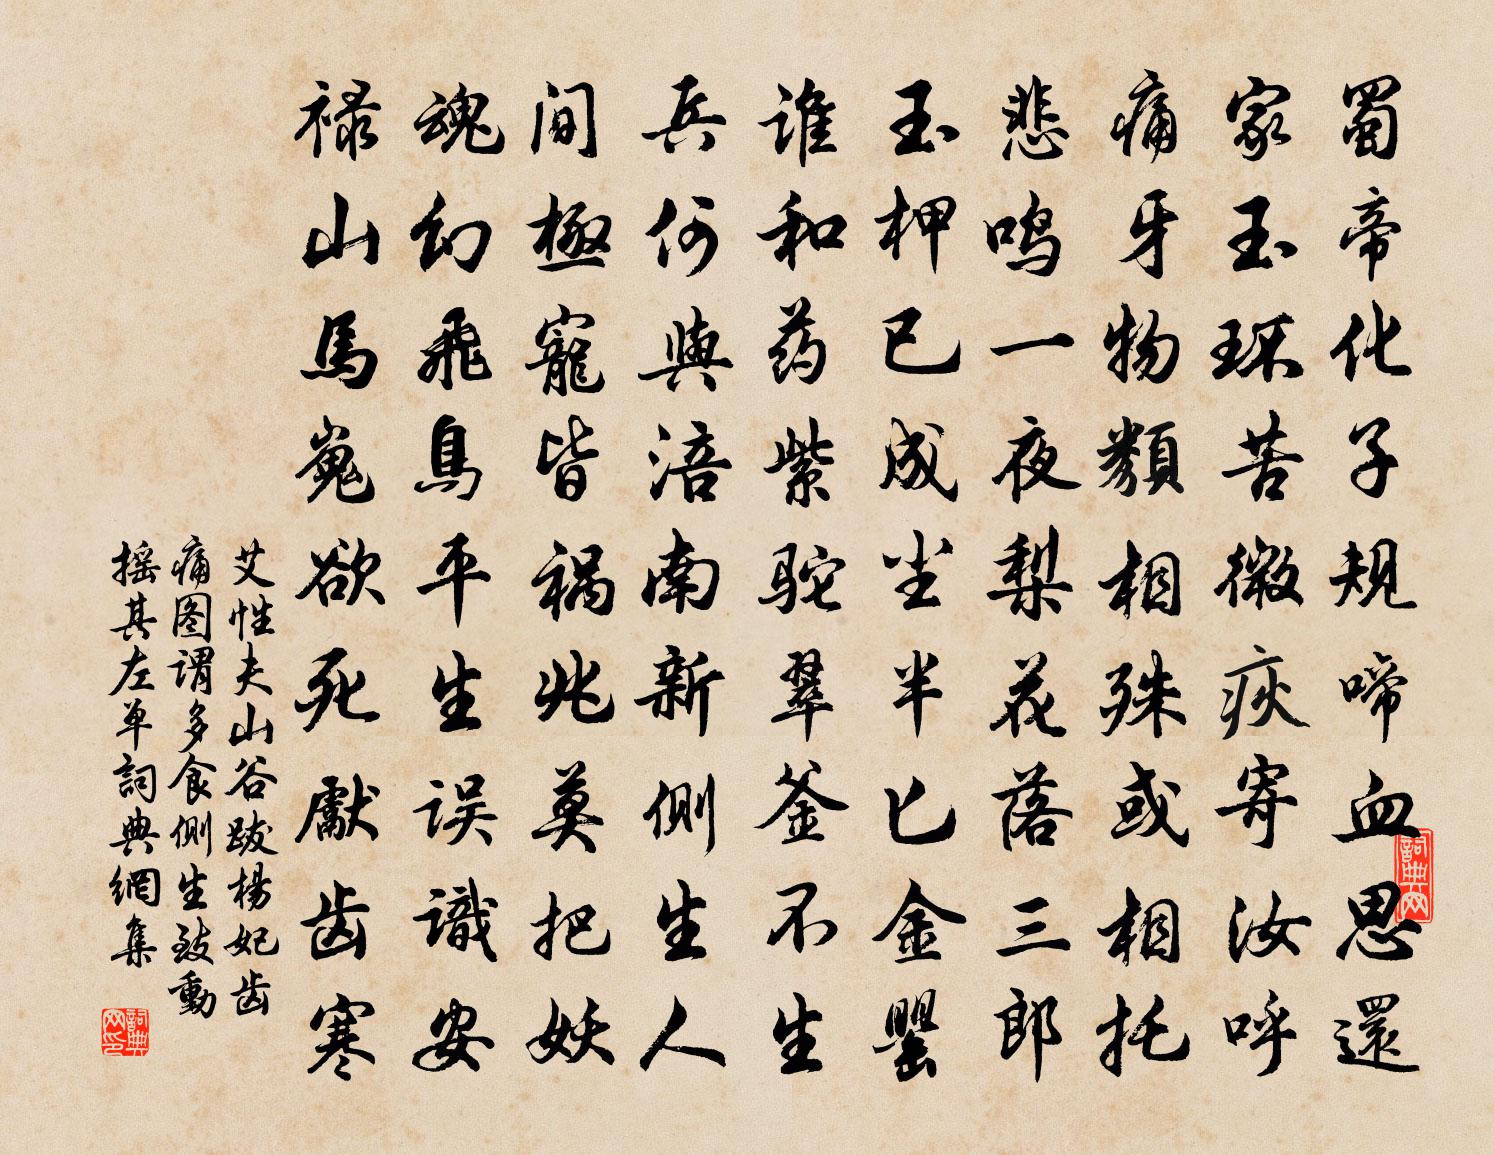 蜀帝化子规啼血思還
家玉环苦微疢寄汝呼
痛牙物類相殊或相托
悲鸣一夜梨花落三郎
玉柙已成尘半匕金罌
谁和药紫驼翠釜不生
兵何與涪南新侧生人
间極寵皆祸兆莫把妖
魂幻飛鳥平生误識安
禄山馬嵬欲死獻齿寒
艾性夫山谷跋楊妃齿
痛图谓多食側生致動
摇其左单詞典網集
詞典网
詞典网印